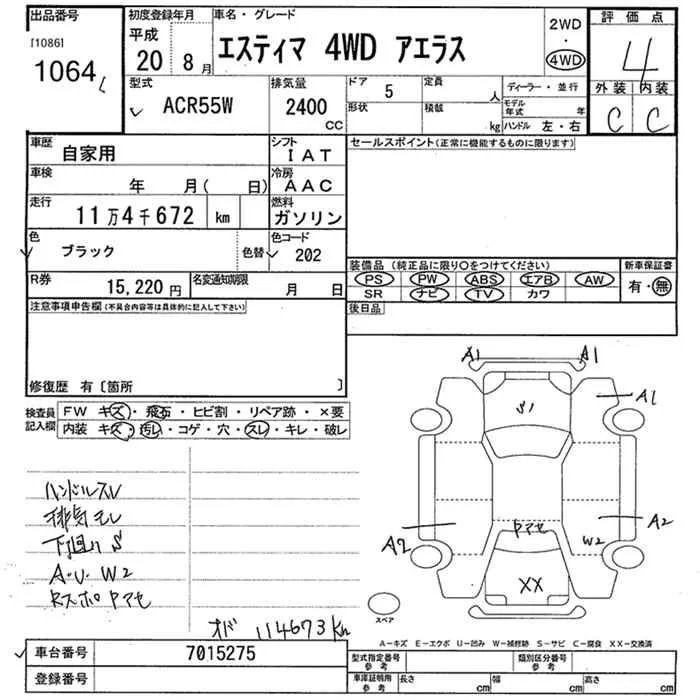 出品番号
[1086]
1064
初度登録年月
平成
20 8月
車名・グレード
エスティマ 4WD アエラス
2WD
・
4WD
評価点
4
外装 内装
C C
型式
ACR55W
排気量
2400
CC
ドア
5
定員
人
形状
積載
kg
ディーラー・並行
モデル年式 年
ハンドル 左・右
車歴
自家用
シフト
IAT
車検
年 月( 日)
冷房
AAC
走行
11万4千672 km
燃料
ガソリン
色
ブラック
色替
色コード
202
R券
15,220円
名変通知期限
月 日
セールスポイント(正常に機能するものに限ります)
装備品(純正品に限り○をつけてください)
新車保証書
PS PW ABS エアB AW
SR ナビ TV カワ
有・無
後日品
注意事項申告欄(不具合内容等は具体的に記入して下さい)
修復歴 有〔箇所 〕
検査員記入欄
FW キズ・飛石・ヒビ割・リペア跡・×要
内装 キズ・汚レ・コゲ・穴・スレ・キレ・破レ
ハンドルスレ
排気モレ
下廻リ S
A.U. W2
Rスポ Pアセ
オド 114673km
A1 A1
S1
A1
A2
A2
Pアセ
W2
XX
スペア
A-キズ E-エクボ U-凹み W-補修跡 S-サビ C-腐食 XX-交換済
車台番号
7015275
登録番号
型式指定番号
参考
類別区分番号
参考
車庫証明用
参考
長さ cm 幅 cm 高さ cm